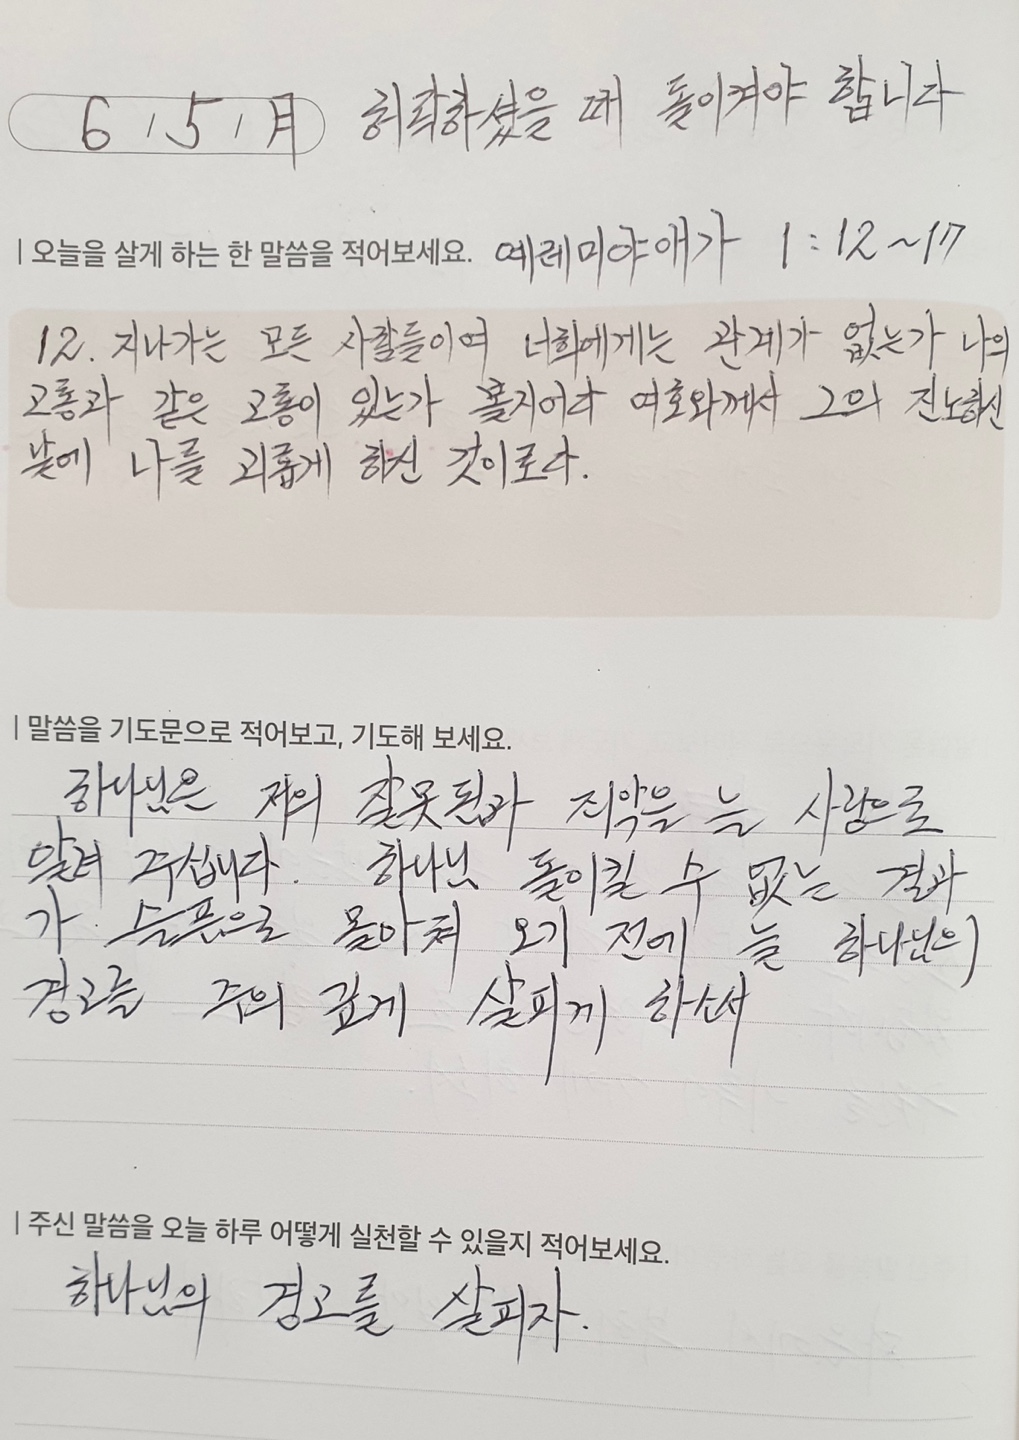 6 / 5 / 月 허락하셨을 때 돌이켜야 합니다
| 오늘을 살게 하는 한 말씀을 적어보세요. 예레미야애가 1:12~17
12. 지나가는 모든 사람들이여 너희에게는 관계가 없는가 나의
고통과 같은 고통이 있는가 볼지어다 여호와께서 그의 진노하신
날에 나를 괴롭게 하신 것이로다.
| 말씀을 기도문으로 적어보고, 기도해 보세요.
하나님은 저의 잘못된과 죄악을 늘 사랑으로
알려 주십니다. 하나님 돌이킬 수 없는 결과
가 슬픔으로 몰아쳐 오기 전에 늘 하나님의
경고를 주의 깊게 살피게 하소서
| 주신 말씀을 오늘 하루 어떻게 실천할 수 있을지 적어보세요.
하나님의 경고를 살피자.